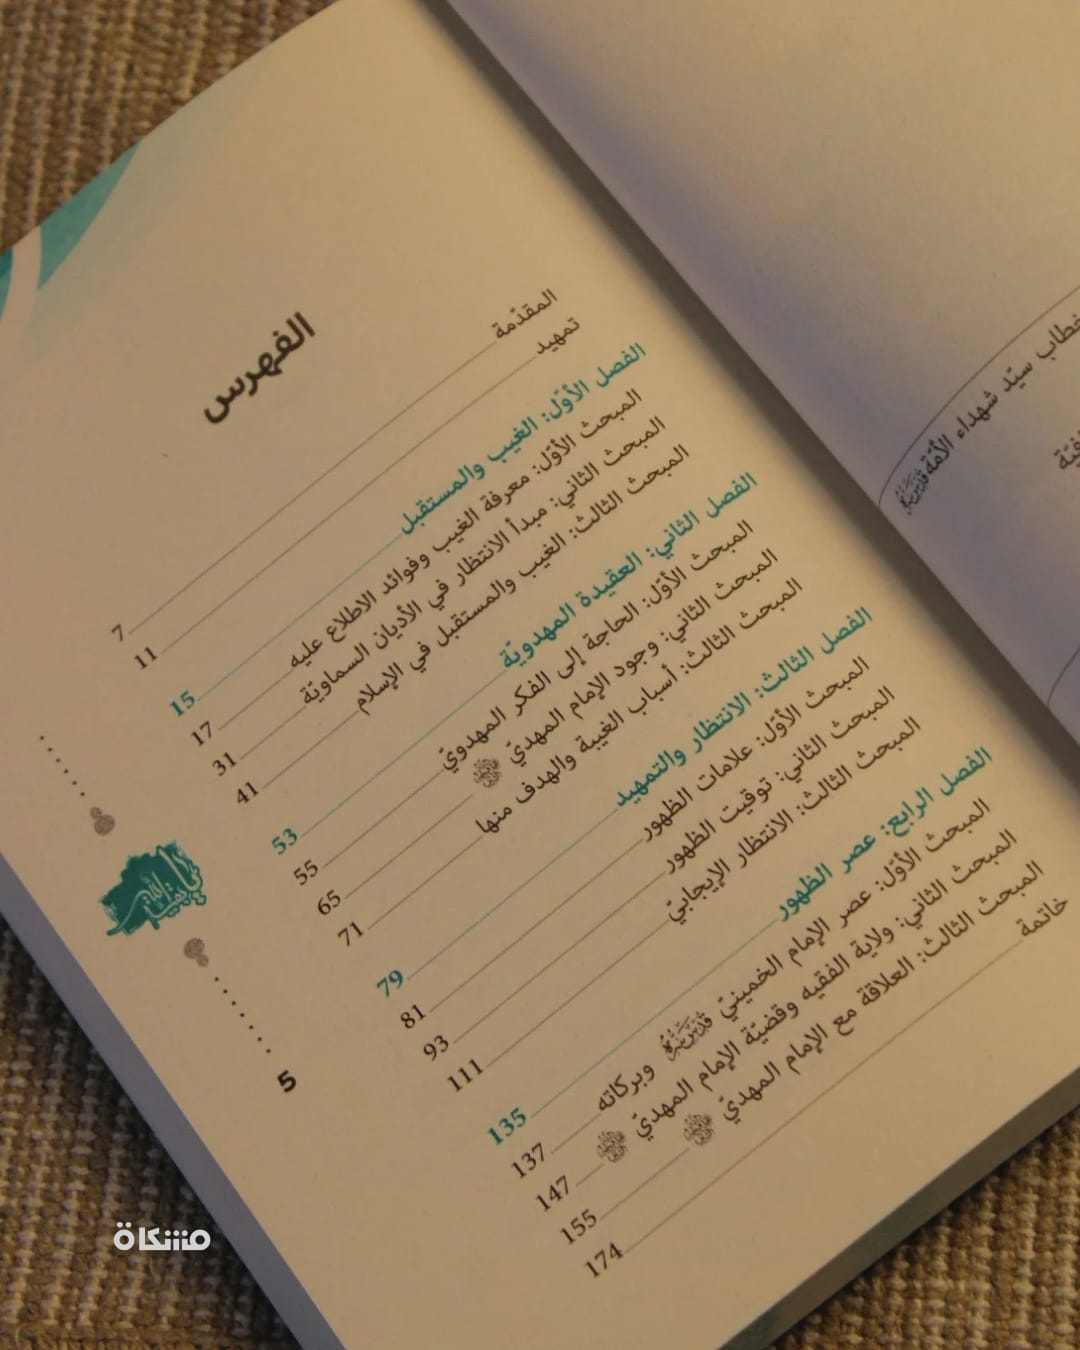 خطاب سيّد شهداء الأمّة
الفهرس
المقدّمة 7
تمهيد 11
الفصل الأوّل: الغيب والمستقبل 15
المبحث الأوّل: معرفة الغيب وفوائد الاطلاع عليه 17
المبحث الثاني: مبدأ الانتظار في الأديان السماويّة 31
المبحث الثالث: الغيب والمستقبل في الإسلام 41
الفصل الثاني: العقيدة المهدويّة 53
المبحث الأوّل: الحاجة إلى الفكر المهدويّ 55
المبحث الثاني: وجود الإمام المهديّ 65
المبحث الثالث: أسباب الغيبة والهدف منها 71
الفصل الثالث: الانتظار والتمهيد 79
المبحث الأوّل: علامات الظهور 81
المبحث الثاني: توقيت الظهور 93
المبحث الثالث: الانتظار الإيجابيّ 111
الفصل الرابع: عصر الظهور 135
المبحث الأوّل: عصر الإمام الخمينيّ وبركاته 137
المبحث الثاني: ولاية الفقيه وقضيّة الإمام المهديّ 147
المبحث الثالث: العلاقة مع الإمام المهديّ 155
خاتمة 174
يا بقية الله
5
مشكاة